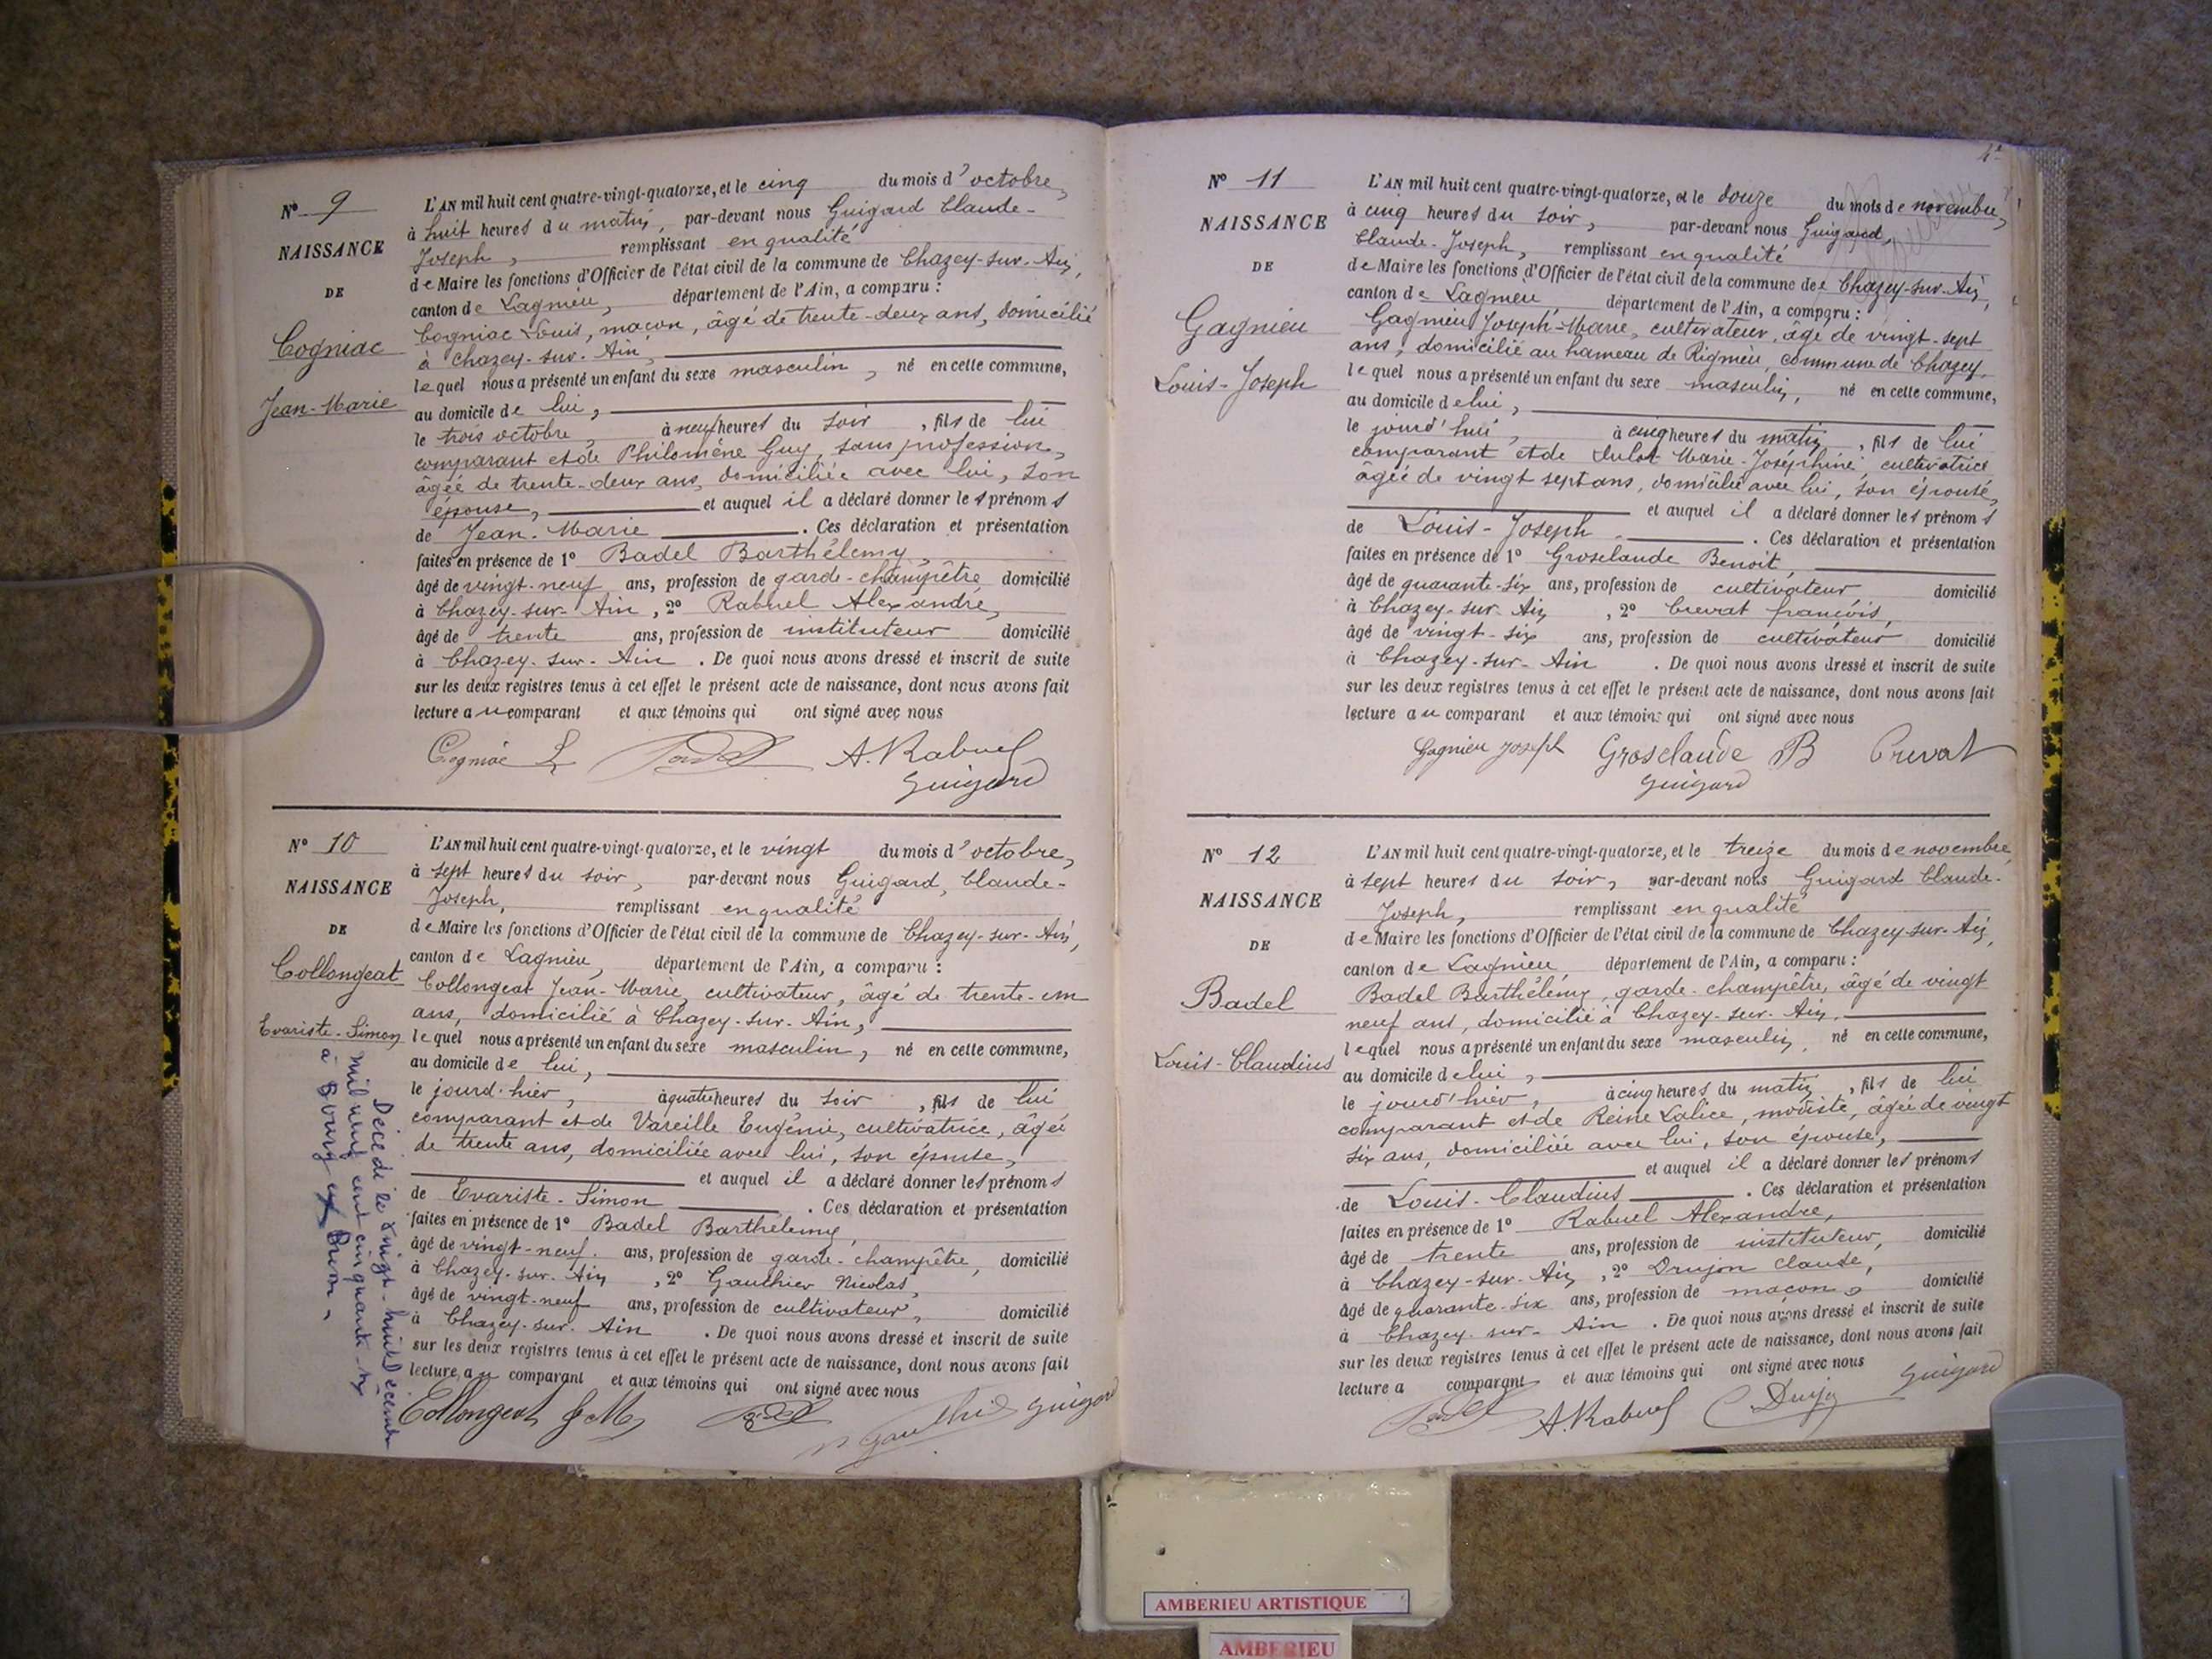 N° 9
NAISSANCE
DE
Cogniac
Jean-Marie
L'AN mil huit cent quatre-vingt-quatorze, et le cinq du mois d'octobre,
à huit heures du matin, par-devant nous Guigard Claude-
Joseph, remplissant en qualité
de Maire les fonctions d'Officier de l'état civil de la commune de Chazey-sur-Ain,
canton de Lagnieu, département de l'Ain, a comparu :
Cogniac Louis, maçon, âgé de trente-deux ans, domicilié
à Chazey-sur-Ain,
lequel nous a présenté un enfant du sexe masculin, né en cette commune,
au domicile de lui,
le trois octobre, à neuf heures du soir, fils de lui
comparant et de Philomène Guy, sans profession,
âgée de trente-deux ans, domiciliée avec lui, son
épouse, et auquel il a déclaré donner les prénoms
de Jean-Marie. Ces déclaration et présentation
faites en présence de 1° Badel Barthélemy,
âgé de vingt-neuf ans, profession de garde-champêtre domicilié
à Chazey-sur-Ain, 2° Rabuel Alexandre,
âgé de trente ans, profession de instituteur domicilié
à Chazey-sur-Ain. De quoi nous avons dressé et inscrit de suite
sur les deux registres tenus à cet effet le présent acte de naissance, dont nous avons fait
lecture au comparant et aux témoins qui ont signé avec nous
Cogniac L Badel A. Rabuel
Guigard
N° 10
NAISSANCE
DE
Collongeat
Evariste-Simon
Décédé le vingt-huit Décembre
mil neuf cent cinquante-six
à Bourg
L'AN mil huit cent quatre-vingt-quatorze, et le vingt du mois d'octobre,
à sept heures du soir, par-devant nous Guigard, Claude-
Joseph, remplissant en qualité
de Maire les fonctions d'Officier de l'état civil de la commune de Chazey-sur-Ain,
canton de Lagnieu, département de l'Ain, a comparu :
Collongeat Jean-Marie, cultivateur, âgé de trente-un
ans, domicilié à Chazey-sur-Ain,
lequel nous a présenté un enfant du sexe masculin, né en cette commune,
au domicile de lui,
le jourd'hier, à quatre heures du soir, fils de lui
comparant et de Vareille Eugénie, cultivatrice, âgée
de trente ans, domiciliée avec lui, son épouse,
et auquel il a déclaré donner les prénoms
de Evariste-Simon. Ces déclaration et présentation
faites en présence de 1° Badel Barthélemy,
âgé de vingt-neuf. ans, profession de garde-champêtre, domicilié
à Chazey-sur-Ain, 2° Gauthier Nicolas,
âgé de vingt-neuf ans, profession de cultivateur, domicilié
à Chazey-sur-Ain. De quoi nous avons dressé et inscrit de suite
sur les deux registres tenus à cet effet le présent acte de naissance, dont nous avons fait
lecture au comparant et aux témoins qui ont signé avec nous
Collongeat J M Badel N Gauthier Guigard
N° 11
NAISSANCE
DE
Gagnieu
Louis-Joseph
L'AN mil huit cent quatre-vingt-quatorze, et le douze du mois de novembre,
à cinq heures du soir, par-devant nous Guigard,
Claude-Joseph, remplissant en qualité
de Maire les fonctions d'Officier de l'état civil de la commune de Chazey-sur-Ain,
canton de Lagnieu département de l'Ain, a comparu :
Gagnieu Joseph-Marie, cultivateur, âgé de vingt-sept
ans, domicilié au hameau de Rignieu, commune de Chazey,
lequel nous a présenté un enfant du sexe masculin, né en cette commune,
au domicile de lui,
le jourd'hui, à cinq heures du matin, fils de lui
comparant et de Marie-Joséphine, cultivatrice
âgée de vingt sept ans, domicilié avec lui, son épouse,
et auquel il a déclaré donner les prénoms
de Louis-Joseph. Ces déclaration et présentation
faites en présence de 1° Groselaude Benoit,
âgé de quarante-six ans, profession de cultivateur, domicilié
à Chazey-sur-Ain, 2° Crevat françois,
âgé de vingt-six ans, profession de cultivateur domicilié
à Chazey-sur-Ain. De quoi nous avons dressé et inscrit de suite
sur les deux registres tenus à cet effet le présent acte de naissance, dont nous avons fait
lecture au comparant et aux témoins qui ont signé avec nous
Gagnieu Joseph Groselaude B Crevat
Guigard
N° 12
NAISSANCE
DE
Badel
Louis-Claudius
L'AN mil huit cent quatre-vingt-quatorze, et le treize du mois de novembre,
à sept heures du soir, par-devant nous Guigard Claude-
Joseph, remplissant en qualité
de Maire les fonctions d'Officier de l'état civil de la commune de Chazey-sur-Ain,
canton de Lagnieu, département de l'Ain, a comparu :
Badel Barthélémy, garde-champêtre, âgé de vingt
neuf ans, domicilié à Chazey-sur-Ain,
lequel nous a présenté un enfant du sexe masculin, né en cette commune,
au domicile de lui,
le jourd'hier, à cinq heures du matin, fils de lui
comparant et de Reine Lalice, modiste, âgée de vingt
six ans, domiciliée avec lui, son épouse,
et auquel il a déclaré donner les prénoms
de Louis-Claudius. Ces déclaration et présentation
faites en présence de 1° Rabuel Alexandre,
âgé de trente ans, profession de instituteur, domicilié
à Chazey-sur-Ain, 2° Drujon Claude,
âgé de quarante-six ans, profession de maçon, domicilié
à Chazey-sur-Ain. De quoi nous avons dressé et inscrit de suite
sur les deux registres tenus à cet effet le présent acte de naissance, dont nous avons fait
lecture a comparant et aux témoins qui ont signé avec nous
Badel A. Rabuel C Drujon Guigard
AMBERIEU ARTISTIQUE
AMBERIEU